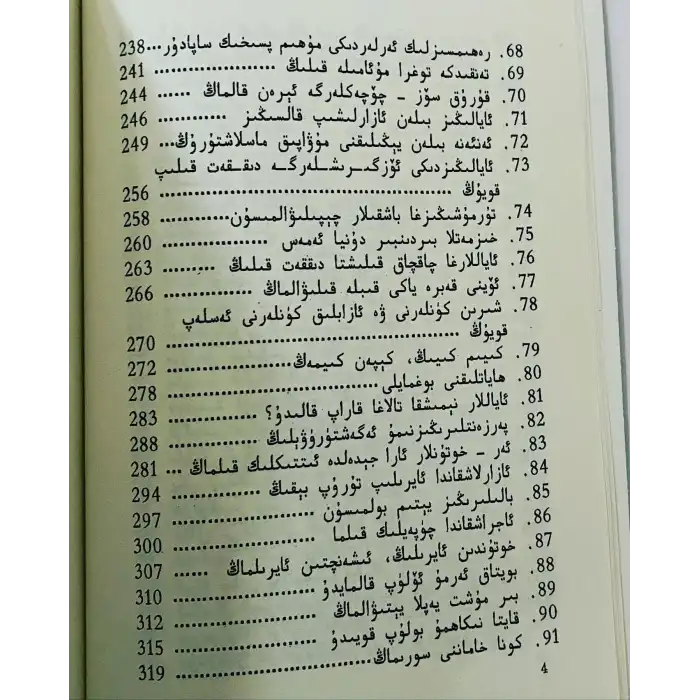 68. رەھىمسىزلىك ئەرلەردىكى مۇھىم پىسخىك ساپادۇر...238
69. تەنقىدكە توغرا مۇئامىلە قىلىڭ ..................... 241
70. قۇرۇق سۆز - چۆچەكلەرگە ئېرەن قالماڭ ...... 244
71. ئايالىڭىز بىلەن ئازارلىشىپ قالسىڭىز ............ 246
72. ئەنئەنە بىلەن يېڭىلىقنى مۇۋاپىق ماسلاشتۇرۇڭ... 249
73. ئايالىڭىزدىكى ئۆزگىرىشلەرگە دىققەت قىلىپ
قويۇڭ ................................................ 256
74. تۇرمۇشىڭىزغا باشقىلار چېپىلىۋالمىسۇن............ 258
75. خىزمەتلا بىردىنبىر دۇنيا ئەمەس .................. 260
76. ئاياللارغا چاقچاق قىلىشتا دىققەت قىلىڭ ......... 263
77. ئۆينى قەبرە ياكى قىبلە قىلىۋالماڭ ............... 266
78. شىرىن كۈنلەرنى ۋە ئازابلىق كۈنلەرنى ئەسلەپ
قويۇڭ ................................................ 270
79. كىيىم كىيىڭ، كېپەن كىيمەڭ........................ 272
80. ھاياتلىقنى بوغمايلى ................................. 278
81. ئاياللار نېمىشقا تالاغا قاراپ قالىدۇ؟ ............... 283
82. پەرزەنتلىرىڭىزنىمۇ ئەگەشتۈرۈۋېلىڭ ............... 288
83. ئەر - خوتۇنلار ئارا جېدەلدە ئىتتىكلىك قىلماڭ ... 281
84. ئازارلاشقاندا ئايرىلىپ تۇرۇپ بېقىڭ ............... 294
85. بالىلىرىڭىز يېتىم بولمىسۇن ........................ 297
86. ئاجراشقاندا چۈپەيلىك قىلما ........................ 300
87. خوتۇندىن ئايرىلىڭ، ئىشەنچتىن ئايرىلماڭ ...... 307
88. بويتاق ئەرمۇ ئۆلۈپ قالمايدۇ ..................... 310
89. بىر مۇشت يەپلا يېتىۋالماڭ ........................ 312
90. قايتا نىكاھمۇ بولۇپ قويىدۇ ........................ 315
91. كونا خاماننى سورىماڭ.............................. 319
4